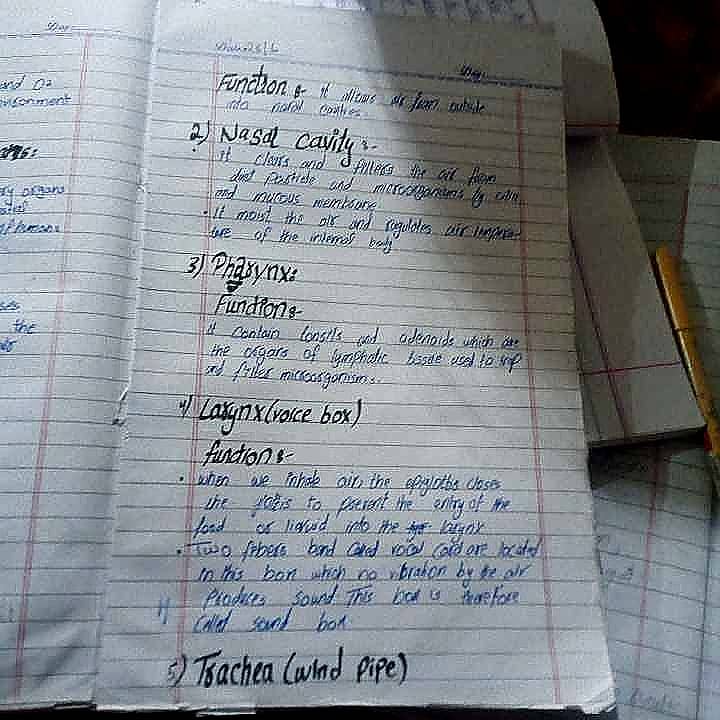 and O2
Function :- It allows air from outside
into nasal cavities.
2) Nasal Cavity :-
It clears and filters the air from
dust particle and microorganisms by cilia
and mucous membrane
• It moist the air and regulates air tempera-
ture of the internal body
3) Pharynx:
Function:-
It contain tonsils and adenoids which are
the organs of lymphatic tissue used to trap
and filter microorganisms.
4) Larynx (voice box)
function :-
• when we inhale air, the epiglottis closes
the to prevent the entry of the
food or liquid into the larynx
• Two febers band called vocal cord are located
in this box which no vibration by the air
Produces sound This box is therefore
called sound box
5) Trachea (wind pipe)
the